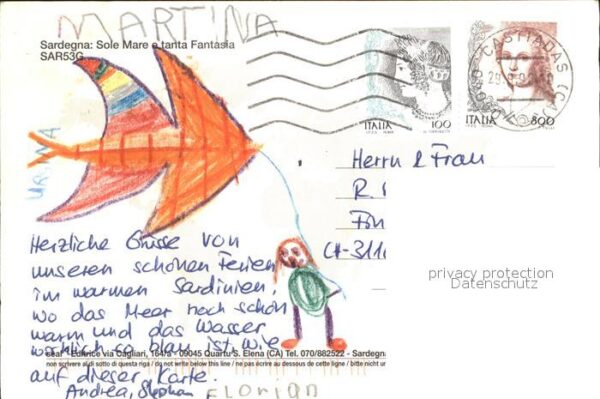 MARTINA
Sardegna: Sole Mare e tanta Fantasia
SAR53G
CASTIADAS (CA)
ITALIA
100
ITALIA
800
Herrn & Frau
R
CH-311
privacy protection
Datenschutz
Herzliche Grüsse von
unseren schönen Ferien
im warmen Sardinien,
wo das Meer noch schön
warm und das Wasser
wirklich so blau ist wie
auf dieser Karte.
Andrea, Stephan
Florian
Editrice via Cagliari, 164/a - 09045 Quartu S. Elena (CA) Tel. 070/882522 - Sardegna
non scrivere al di sotto di questa riga / do not write below this line / ne pas écrire au dessous de cette ligne / bitte nicht